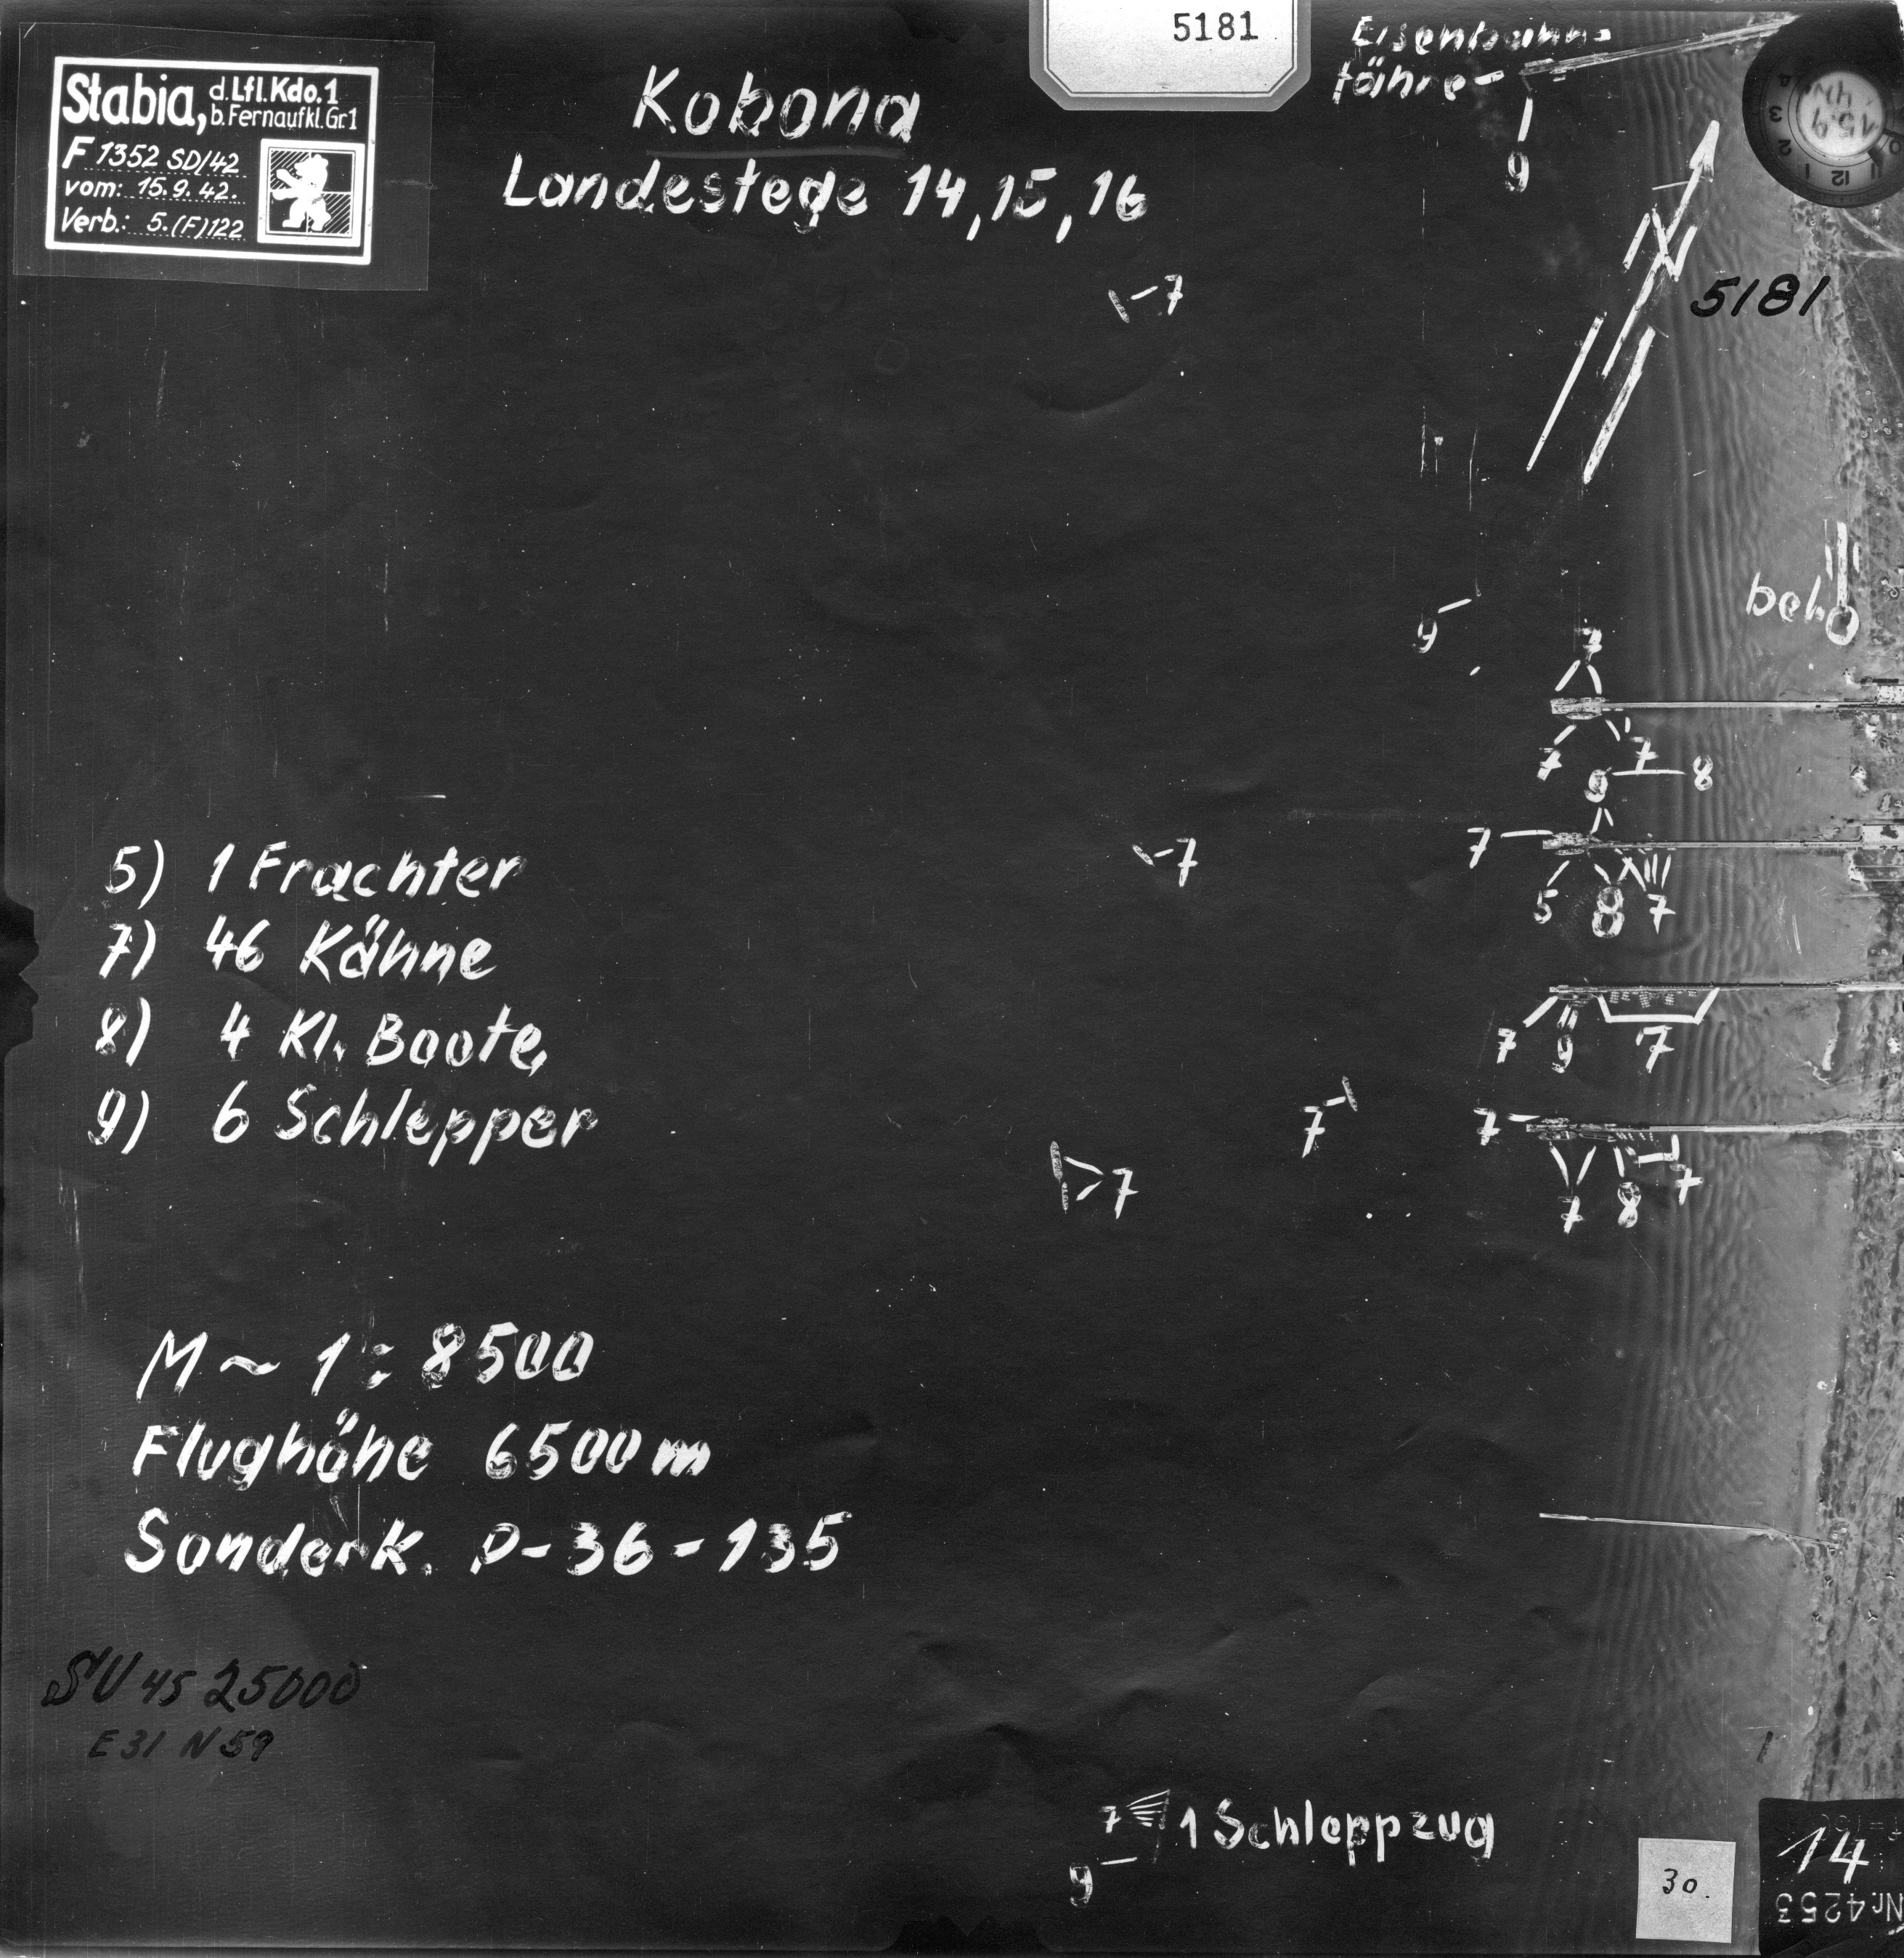 5181
Stabia, d. Lfl. Kdo. 1
b. Fernaufkl. Gr. 1
F 1352 SD/42
vom: 15.9.42.
Verb.: 5.(F)122
Kobona
Landestege 14, 15, 16
Eisenbahn-
fähre
9
N
5181
7
9
7
7
7
8
9
7
7
5
8
7
7
9
7
7
7
7
8
7
7
5) 1 Frachter
7) 46 Kähne
8) 4 Kl. Boote,
9) 6 Schlepper
M ~ 1:8500
Flughöhe 6500 m
Sonderk. P-36-135
SU 45 25000
E 31 N 59
7 1 Schleppzug
9
30.
14
Nr. 4253